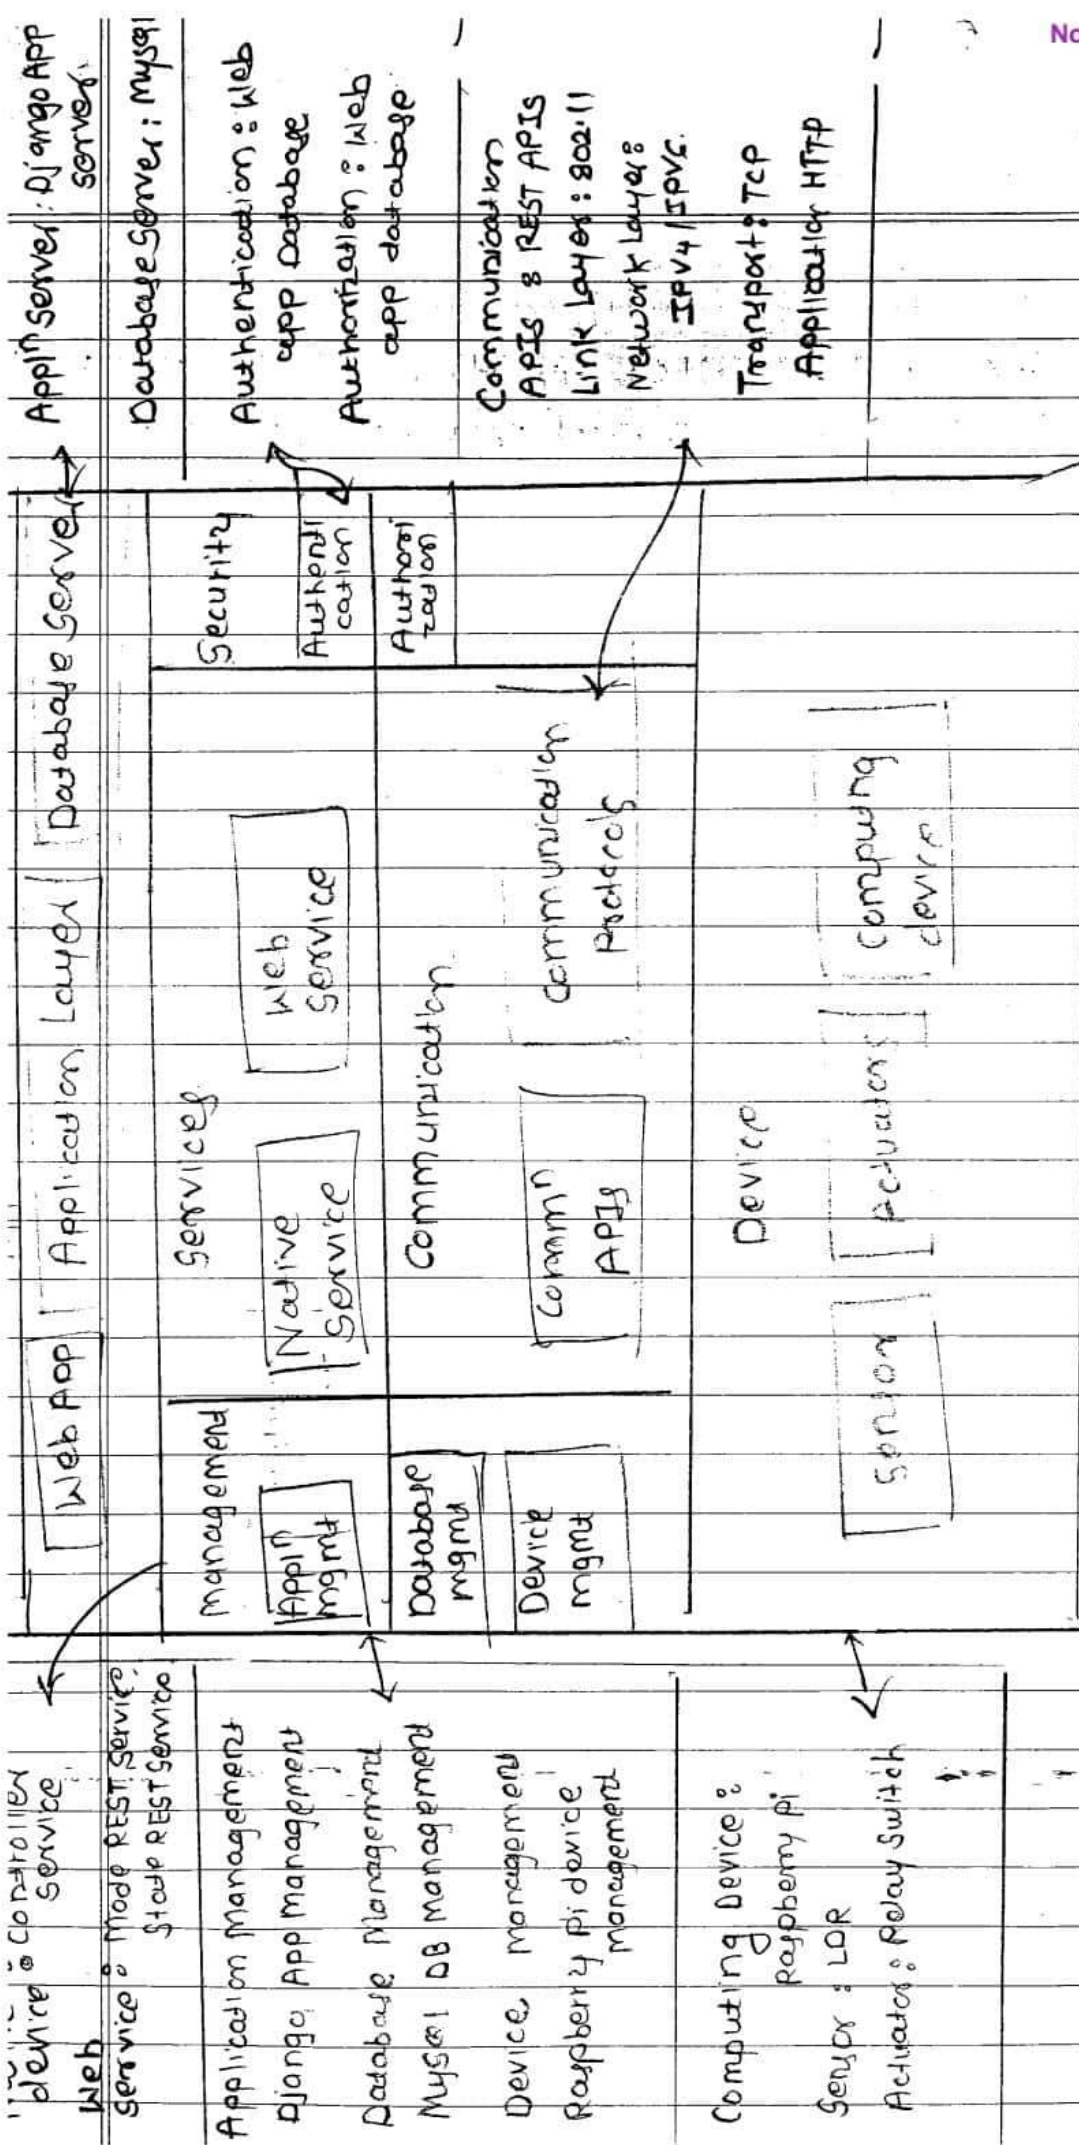 No
device : Controller
Service
Web
Service : Mode REST Service,
State REST Service
Application Management
Django App Management
Database Management
Mysql DB Management
Device management
Raspberry Pi device
management
Computing Device :
Raspberry Pi
Sensor : LDR
Actuator : Relay Switch
Web App Application Layer Database Server
management
Appln
mgmt
Database
mgmt
Device
mgmt
Services
Native
Service
Web
Service
Communication
Commn
APIs
Communication
Protocols
Security
Authenti
cation
Authori
zation
Device
Sensor Actuators Computing
device
Appln Server : Django App
Server.
Database Server : Mysql
Authentication : Web
app Database
Authorization : Web
app database
Communication
APIs : REST APIs
Link Layer : 802.11
Network Layer :
IPV4 / IPV6
Transport : TCP
Application HTTP